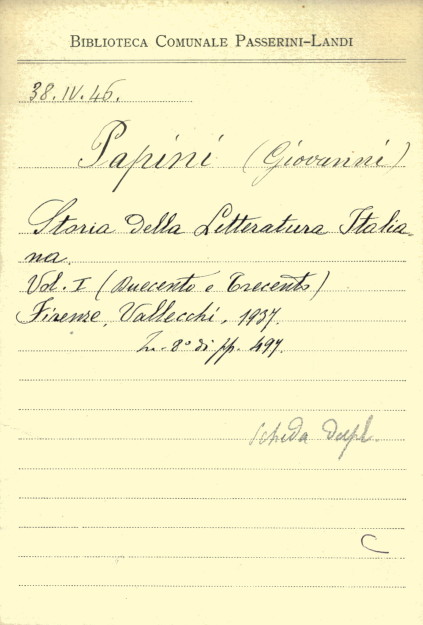 BIBLIOTECA COMUNALE PASSERINI-LANDI
38.IV.46.
Papini (Giovanni)
Storia della Letteratura Italia-
na.
Vol. I (Duecento e Trecento)
Firenze, Vallecchi, 1937.
In-8° di pp. 497.
Scheda dupl.
C